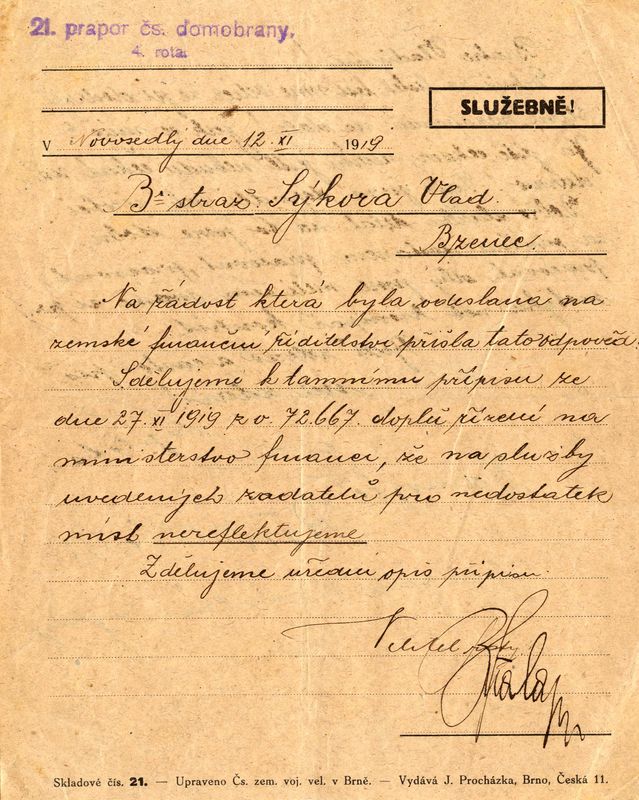 21. prapor čs. domobrany,
4. rota.
SLUŽEBNĚ!
V Novosedlý dne 12 XI 1919
Br straž Sýkora Vlad.
Bzenec.
Na řádost která byla odeslana na
zemské finanční řiditelství přišla tato odpověd.
Sdělujeme k tamnímu připisu ze
dne 27. XI 1919 z o. 72.667. doplů řízeni na
ministerstvo financi, že na služby
uvedených zadatelů pro nedostatek
míst nereflektujeme
Zdělujeme uředni opis připisu.
Velitel
Skladové čís. 21. — Upraveno Čs. zem. voj. vel. v Brně. — Vydává J. Procházka, Brno, Česká 11.